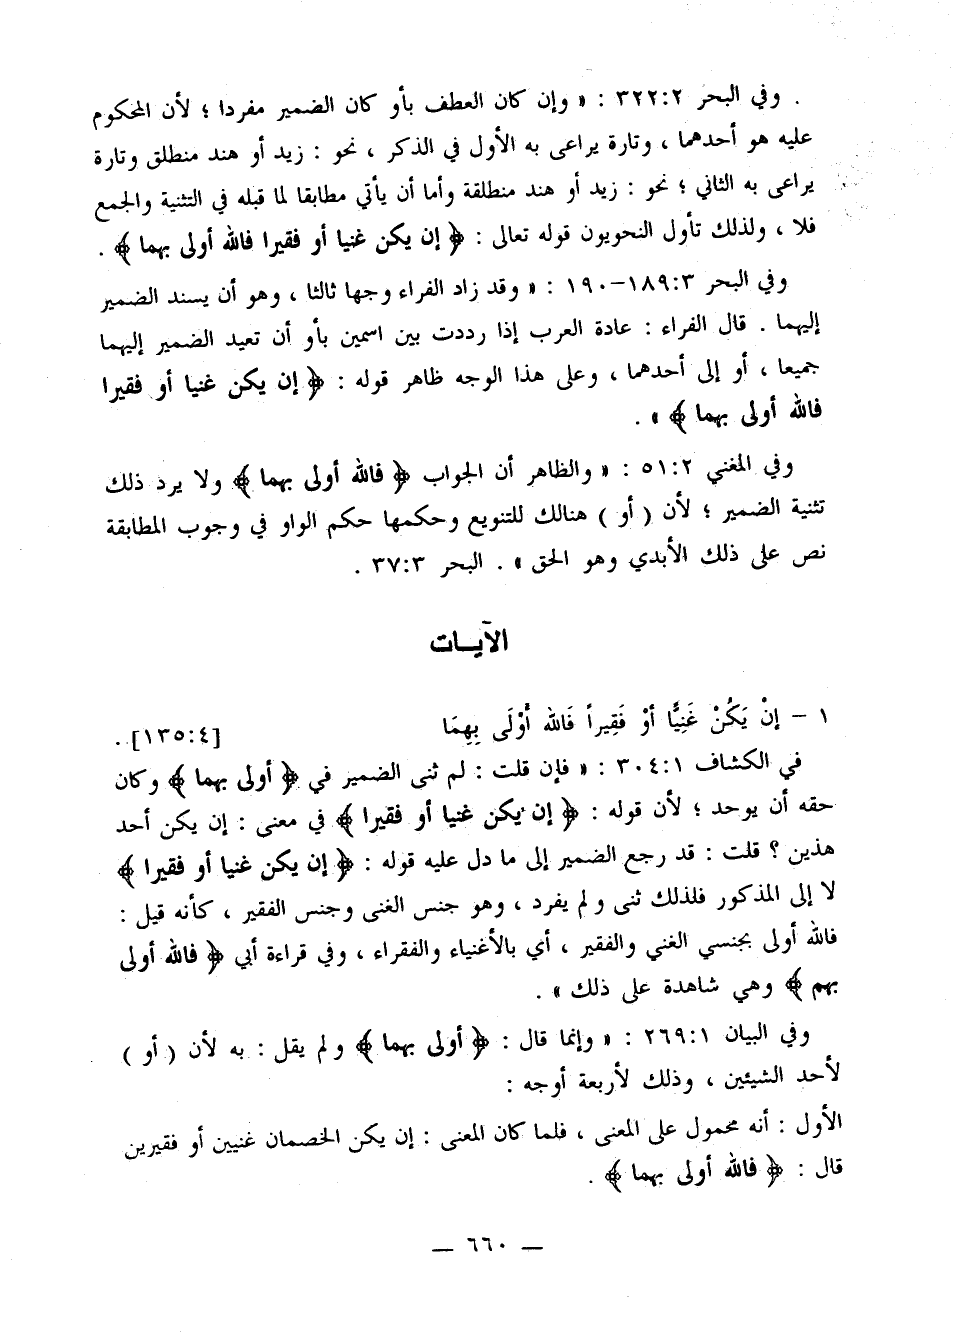 . وفي البحر ٣٢٢:٢ : « وإن كان العطف بأو كان الضمير مفردا ؛ لأن المحكوم
عليه هو أحدهما ، وتارة يراعى به الأول في الذكر ، نحو : زيد أو هند منطلق وتارة
يراعى به الثاني ؛ نحو : زيد أو هند منطلقة وأما أن يأتي مطابقا لما قبله في التثنية والجمع
فلا ، ولذلك تأول النحويون قوله تعالى : ﴿ إن يكن غنيا أو فقيرا فالله أولى بهما ﴾ .
وفي البحر ١٨٩:٣–١٩٠ : « وقد زاد الفراء وجها ثالثا ، وهو أن يسند الضمير
إليهما . قال الفراء : عادة العرب إذا رددت بين اسمين بأو أن تعيد الضمير إليهما
جميعا ، أو إلى أحدهما ، وعلى هذا الوجه ظاهر قوله : ﴿ إن يكن غنيا أو فقيرا
فالله أولى بهما ﴾ » .
وفي المغني ٥١:٢ : « والظاهر أن الجواب ﴿ فالله أولى بهما ﴾ ولا يرد ذلك
تثنية الضمير ؛ لأن ( أو ) هنالك للتنويع وحكمها حكم الواو في وجوب المطابقة
نص على ذلك الأبدي وهو الحق » . البحر ٣٧:٣ .
الآيـات
١ – إنْ يَكُنْ غَنِيًّا أوْ فَقِيراً فَالله أَوْلَى بِهِمَا [١٣٥:٤] .
في الكشاف ٣٠٤:١ : « فإن قلت : لم ثنى الضمير في ﴿ أولى بهما ﴾ وكان
حقه أن يوحد ؛ لأن قوله : ﴿ إن يكن غنيا أو فقيرا ﴾ في معنى : إن يكن أحد
هذين ؟ قلت : قد رجع الضمير إلى ما دل عليه قوله : ﴿ إن يكن غنيا أو فقيرا ﴾
لا إلى المذكور فلذلك ثنى ولم يفرد ، وهو جنس الغنى وجنس الفقير ، كأنه قيل :
فالله أولى بجنسي الغني والفقير ، أي بالأغنياء والفقراء ، وفي قراءة أبي ﴿ فالله أولى
بهم ﴾ وهي شاهدة على ذلك » .
وفي البيان ٢٦٩:١ : « وإنما قال : ﴿ أولى بهما ﴾ ولم يقل : به لأن ( أو )
لأحد الشيئين ، وذلك لأربعة أوجه :
الأول : أنه محمول على المعنى ، فلما كان المعنى : إن يكن الخصمان غنيين أو فقيرين
قال : ﴿ فالله أولى بهما ﴾ .
— ٦٦٠ —